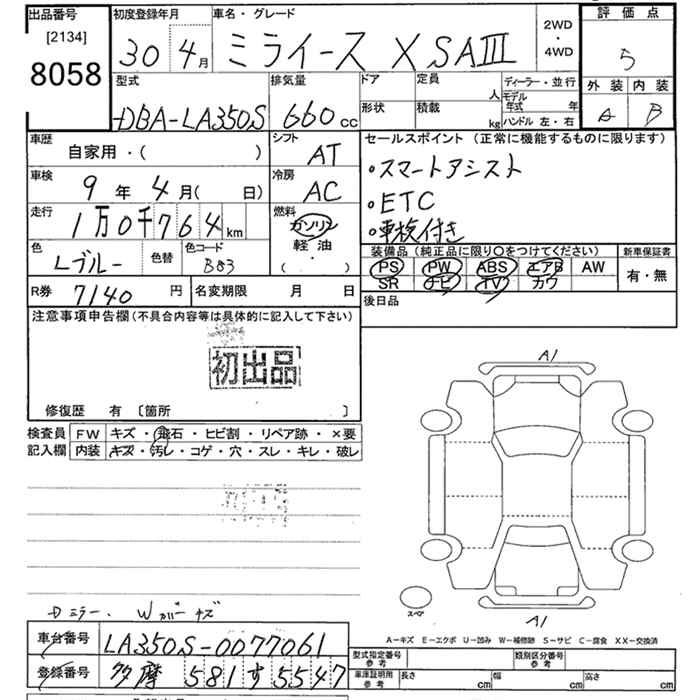 出品番号 [2134] 8058
初度登録年月 30 4月
車名・グレード ミライース X SAⅢ
2WD・4WD
評価点 5
外装 A 内装 B
型式 DBA-LA350S
排気量 660cc
ドア 形状
定員 人
積載 kg
ディーラー・並行
モデル年式 年
ハンドル 左・右
車歴 自家用・( )
シフト AT
車検 9年4月( 日)
冷房 AC
走行 1万0千764km
燃料 ガソリン 軽油 ( ・ )
色 Lブルー 色替 色コード B83
R券 7140円 名変期限 月 日
セールスポイント (正常に機能するものに限ります)
・スマートアシスト
・ETC
・車検付き
装備品 (純正品に限り○をつけてください) 新車保証書
PS PW ABS エアB AW 有・無
SR ナビ TV カワ
後日品
注意事項申告欄(不具合内容等は具体的に記入して下さい)
初出品
修復歴 有 〔箇所 〕
検査員 FW キズ・飛石・ヒビ割・リペア跡・×要
記入欄 内装 キズ・汚レ・コゲ・穴・スレ・キレ・破レ
A1
スペア
A1
Dミラー、Wカバーキズ
A-キズ E-エクボ U-凹み W-補修跡 S-サビ C-腐食 XX-交換済
車台番号 LA350S-0077061
登録番号 多摩 581 す 5547
型式指定番号 参考 類別区分番号 参考
車庫証明用 参考 長さ cm 幅 cm 高さ cm